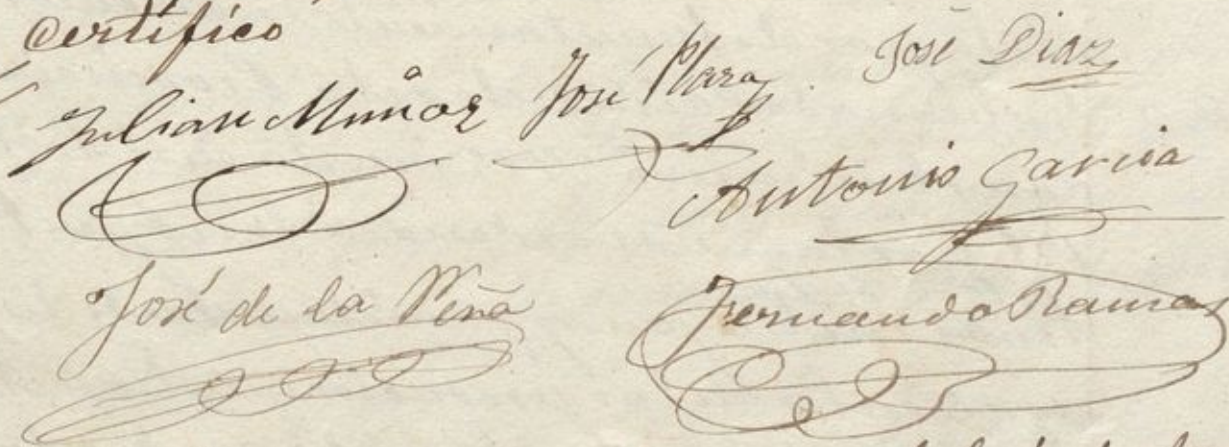 certifico
Julian Muñoz José Plaza José Diaz
Antonio Garcia
José de la Peña Fernando Ramos